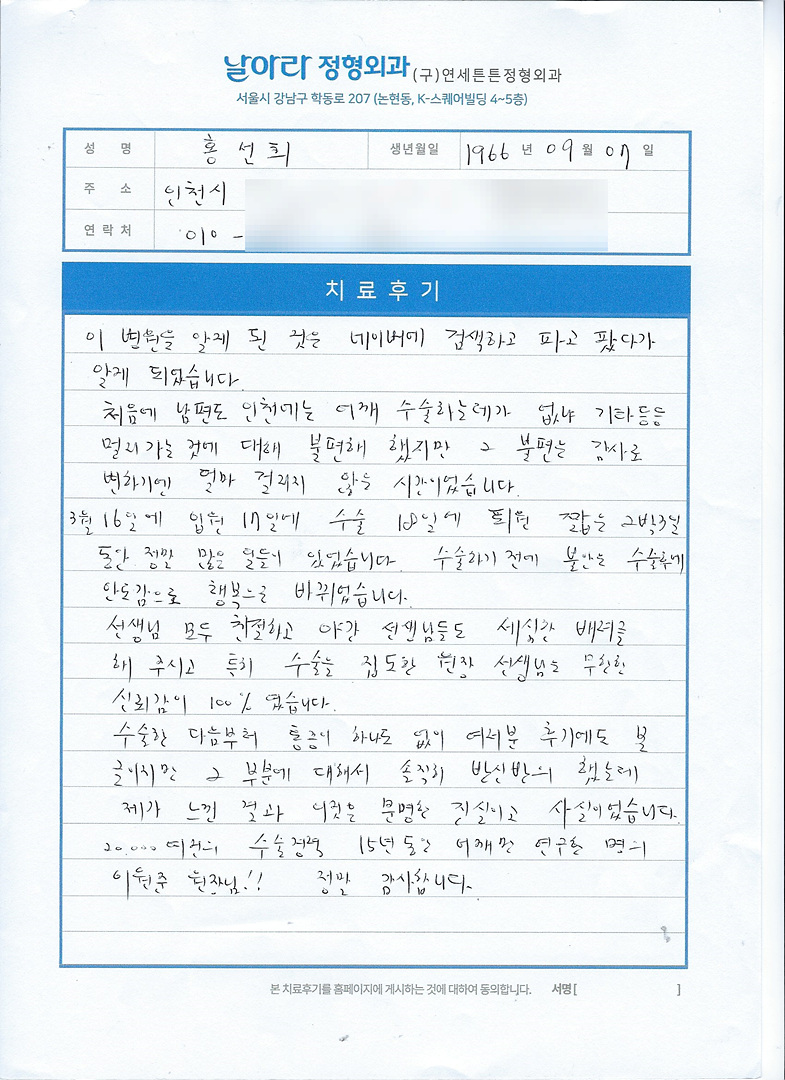 날아라 정형외과 (구)연세튼튼정형외과
서울시 강남구 학동로 207 (논현동, K-스퀘어빌딩 4~5층)
성 명 홍선희 생년월일 1966 년 09 월 07 일
주 소 인천시
연락처 010 -
치료후기
이 병원을 알게 된 것은 네이버에 검색하고 파고 팠다가
알게 되었습니다.
처음에 남편도 인천에는 어깨 수술하는데가 없냐 기타등등
멀리가는 것에 대해 불편해 했지만 그 불편은 감사로
변하기엔 얼마 걸리지 않을 시간이었습니다.
3월 16일에 입원 17일에 수술 18일에 퇴원 짧은 2박3일
동안 정말 많은 일들이 있었습니다. 수술하기 전에 불안은 수술후에
안도감으로 행복으로 바뀌었습니다.
선생님 모두 친절하고 야간 선생님들도 세심한 배려를
해 주시고 특히 수술을 집도한 원장 선생님은 무한한
신뢰감이 100% 였습니다.
수술한 다음부터 통증이 하나도 없이 여러분 후기에도 볼
글이지만 그 부분에 대해서 솔직히 반신반의 했는데
제가 느낀 결과 이것은 분명한 진실이고 사실이었습니다.
20.000 여건의 수술경력 15년 동안 어깨만 연구한 명의
이원준 원장님!! 정말 감사합니다.
본 치료후기를 홈페이지에 게시하는 것에 대하여 동의합니다. 서명 [ ]